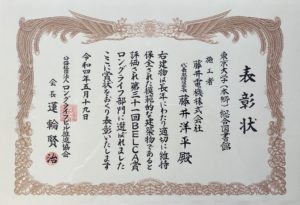 表彰状
東京大学(本郷)総合図書館
施工者
藤井電機株式会社
代表取締役社長 藤井洋平殿
右建物は長年にわたり適切に維持
保全された模範的な建築物であると
評価され第三十一回BELCA賞
ロングライフ部門に選ばれました
ここに賞状をおくり表彰いたします
令和四年五月十九日
公益社団法人 ロングライフビル推進協会
会長 三輪賢治